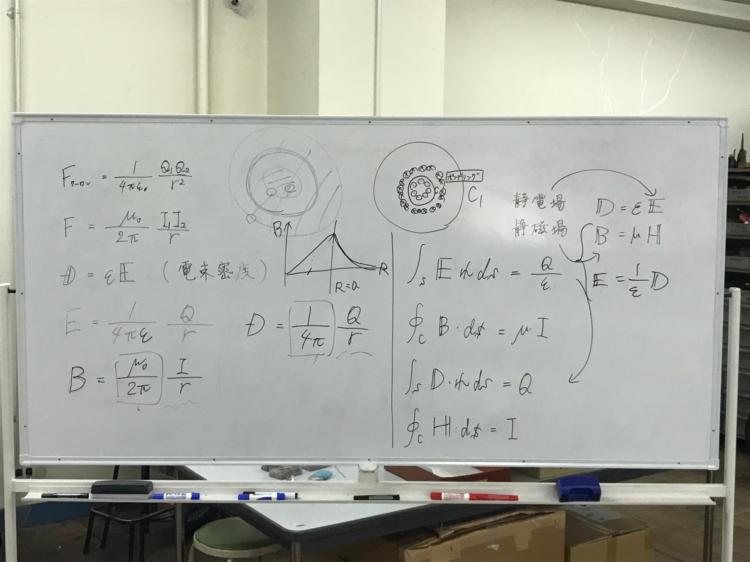 Fクーロン = 1/4πε₀ Q₁Q₂/r²
F = μ₀/2π I₁I₂/r
D = εE (電束密度)
E = 1/4πε Q/r
D = 1/4π Q/r
B = μ₀/2π I/r
B
R
R=a
C₁
静電場
静磁場
D = εE
B = μH
E = 1/ε D
∫s E·n ds = Q/ε
∮c B·ds = μI
∫s D·n ds = Q
∮c H·ds = I